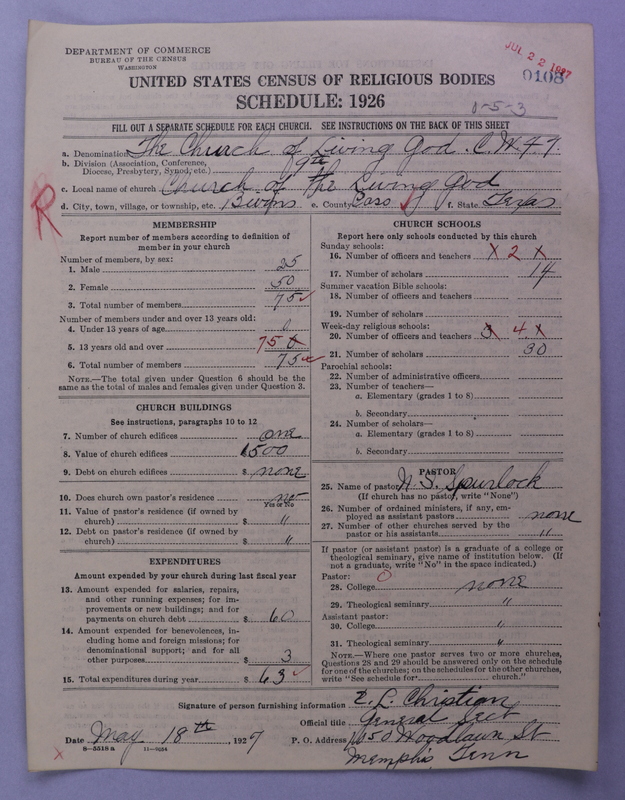 DEPARTMENT OF COMMERCE
BUREAU OF THE CENSUS
WASHINGTON
JUL 22 1927
0108
UNITED STATES CENSUS OF RELIGIOUS BODIES
SCHEDULE: 1926
1-5-3
FILL OUT A SEPARATE SCHEDULE FOR EACH CHURCH. SEE INSTRUCTIONS ON THE BACK OF THIS SHEET
a. Denomination The Church of Living God. C. W. F. F.
b. Division (Association, Conference, Diocese, Presbytery, Synod, etc.) 9th
c. Local name of church Church of The Living God
d. City, town, village, or township, etc. Bivins e. County Cass f. State Texas
R
MEMBERSHIP
Report number of members according to definition of
member in your church
Number of members, by sex:
1. Male 25
2. Female 50
3. Total number of members 75
Number of members under and over 13 years old:
4. Under 13 years of age 0
5. 13 years old and over 75
6. Total number of members 75
NOTE.—The total given under Question 6 should be the
same as the total of males and females given under Question 3.
CHURCH BUILDINGS
See instructions, paragraphs 10 to 12
7. Number of church edifices one
8. Value of church edifices 1500
9. Debt on church edifices $ none
10. Does church own pastor's residence no
Yes or No
11. Value of pastor's residence (if owned by
church) $ "
12. Debt on pastor's residence (if owned by
church) $ "
EXPENDITURES
Amount expended by your church during last fiscal year
13. Amount expended for salaries, repairs,
and other running expenses; for im-
provements or new buildings; and for
payments on church debt $ 60
14. Amount expended for benevolences, in-
cluding home and foreign missions; for
denominational support; and for all
other purposes $ 3
15. Total expenditures during year $ 63
CHURCH SCHOOLS
Report here only schools conducted by this church
Sunday schools:
16. Number of officers and teachers x 2 x
17. Number of scholars 14
Summer vacation Bible schools:
18. Number of officers and teachers
19. Number of scholars
Week-day religious schools:
20. Number of officers and teachers 3 4 x
21. Number of scholars 30
Parochial schools:
22. Number of administrative officers
23. Number of teachers—
a. Elementary (grades 1 to 8)
b. Secondary
24. Number of scholars—
a. Elementary (grades 1 to 8)
b. Secondary
PASTOR
25. Name of pastor N. S. Spurlock
(If church has no pastor, write "None")
26. Number of ordained ministers, if any, em-
ployed as assistant pastors none
27. Number of other churches served by the
pastor or his assistants "
If pastor (or assistant pastor) is a graduate of a college or
theological seminary, give name of institution below. (If
not a graduate, write "No" in the space indicated.)
Pastor: O
28. College none
29. Theological seminary "
Assistant pastor:
30. College "
31. Theological seminary "
NOTE.—Where one pastor serves two or more churches,
Questions 28 and 29 should be answered only on the schedule
for one of the churches; on the schedules for the other churches,
write "See schedule for church."
Signature of person furnishing information E. L. Christian
Official title General Sect
Date May 18th, 1927 P. O. Address 1050 Woodlawn St
Memphis, Tenn
8—5518 a 11—9654
x